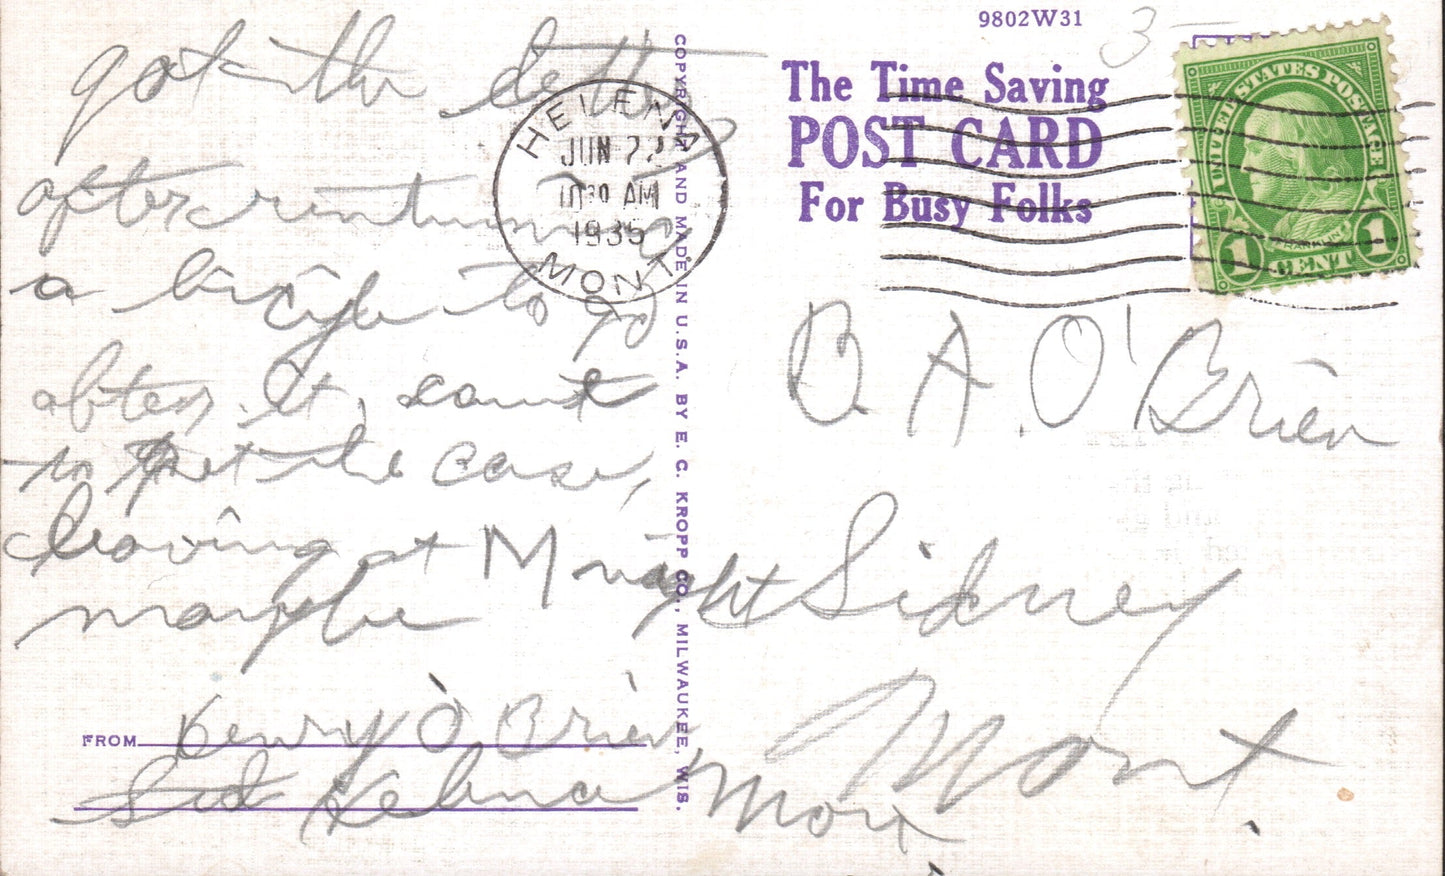 got the letter
after renting
a bicycle to go
after it, cant
get the case,
leaving at M night
maybe
FROM Henry O'Brien
Helena Mont.
COPYRIGHT AND MADE IN U.S.A. BY E. C. KROPP CO., MILWAUKEE, WIS.
HELENA
JUN 22
10 30 AM
1935
MONT.
9802W31
3-
The Time Saving
POST CARD
For Busy Folks
UNITED STATES POSTAGE
FRANKLIN
1 CENT 1
A. O'Brien
Sidney
Mont.